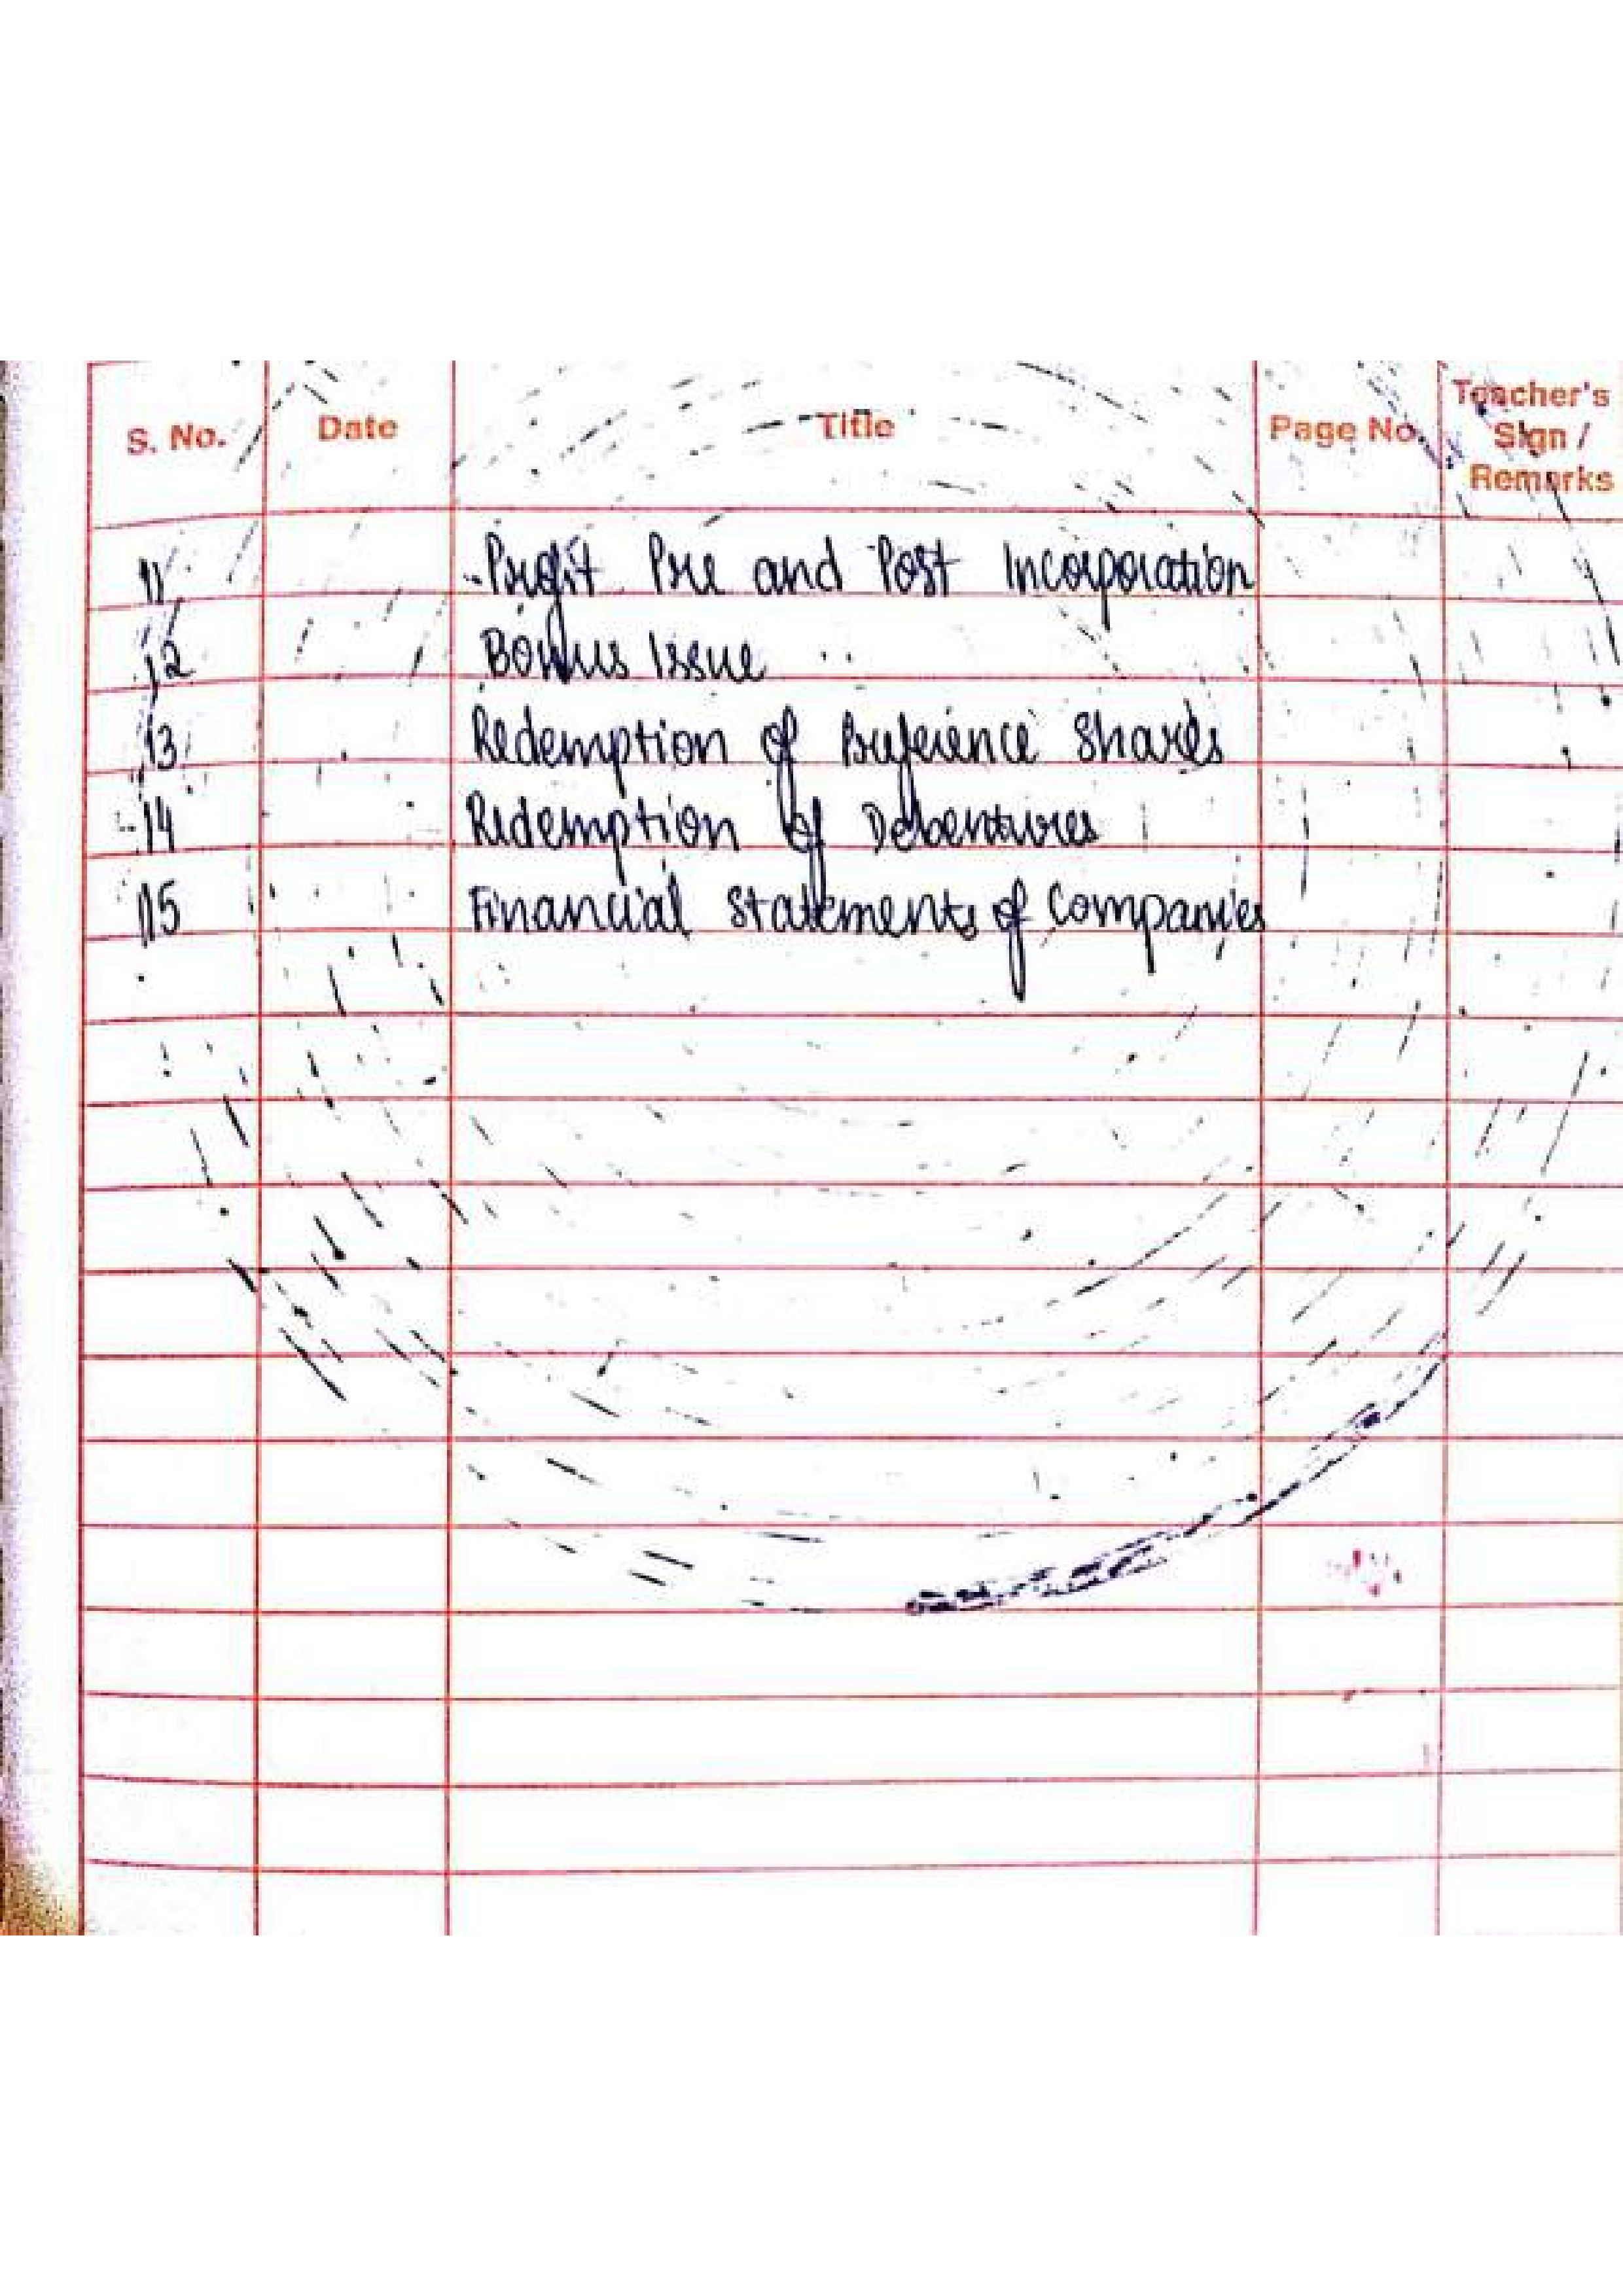 S. No. Date Title Page No. Teacher's Sign / Remarks
11 Profit Pre and Post Incorporation
12 Bonus Issue
13 Redemption of Preference Shares
14 Redemption of Debentures
15 Financial Statements of Companies